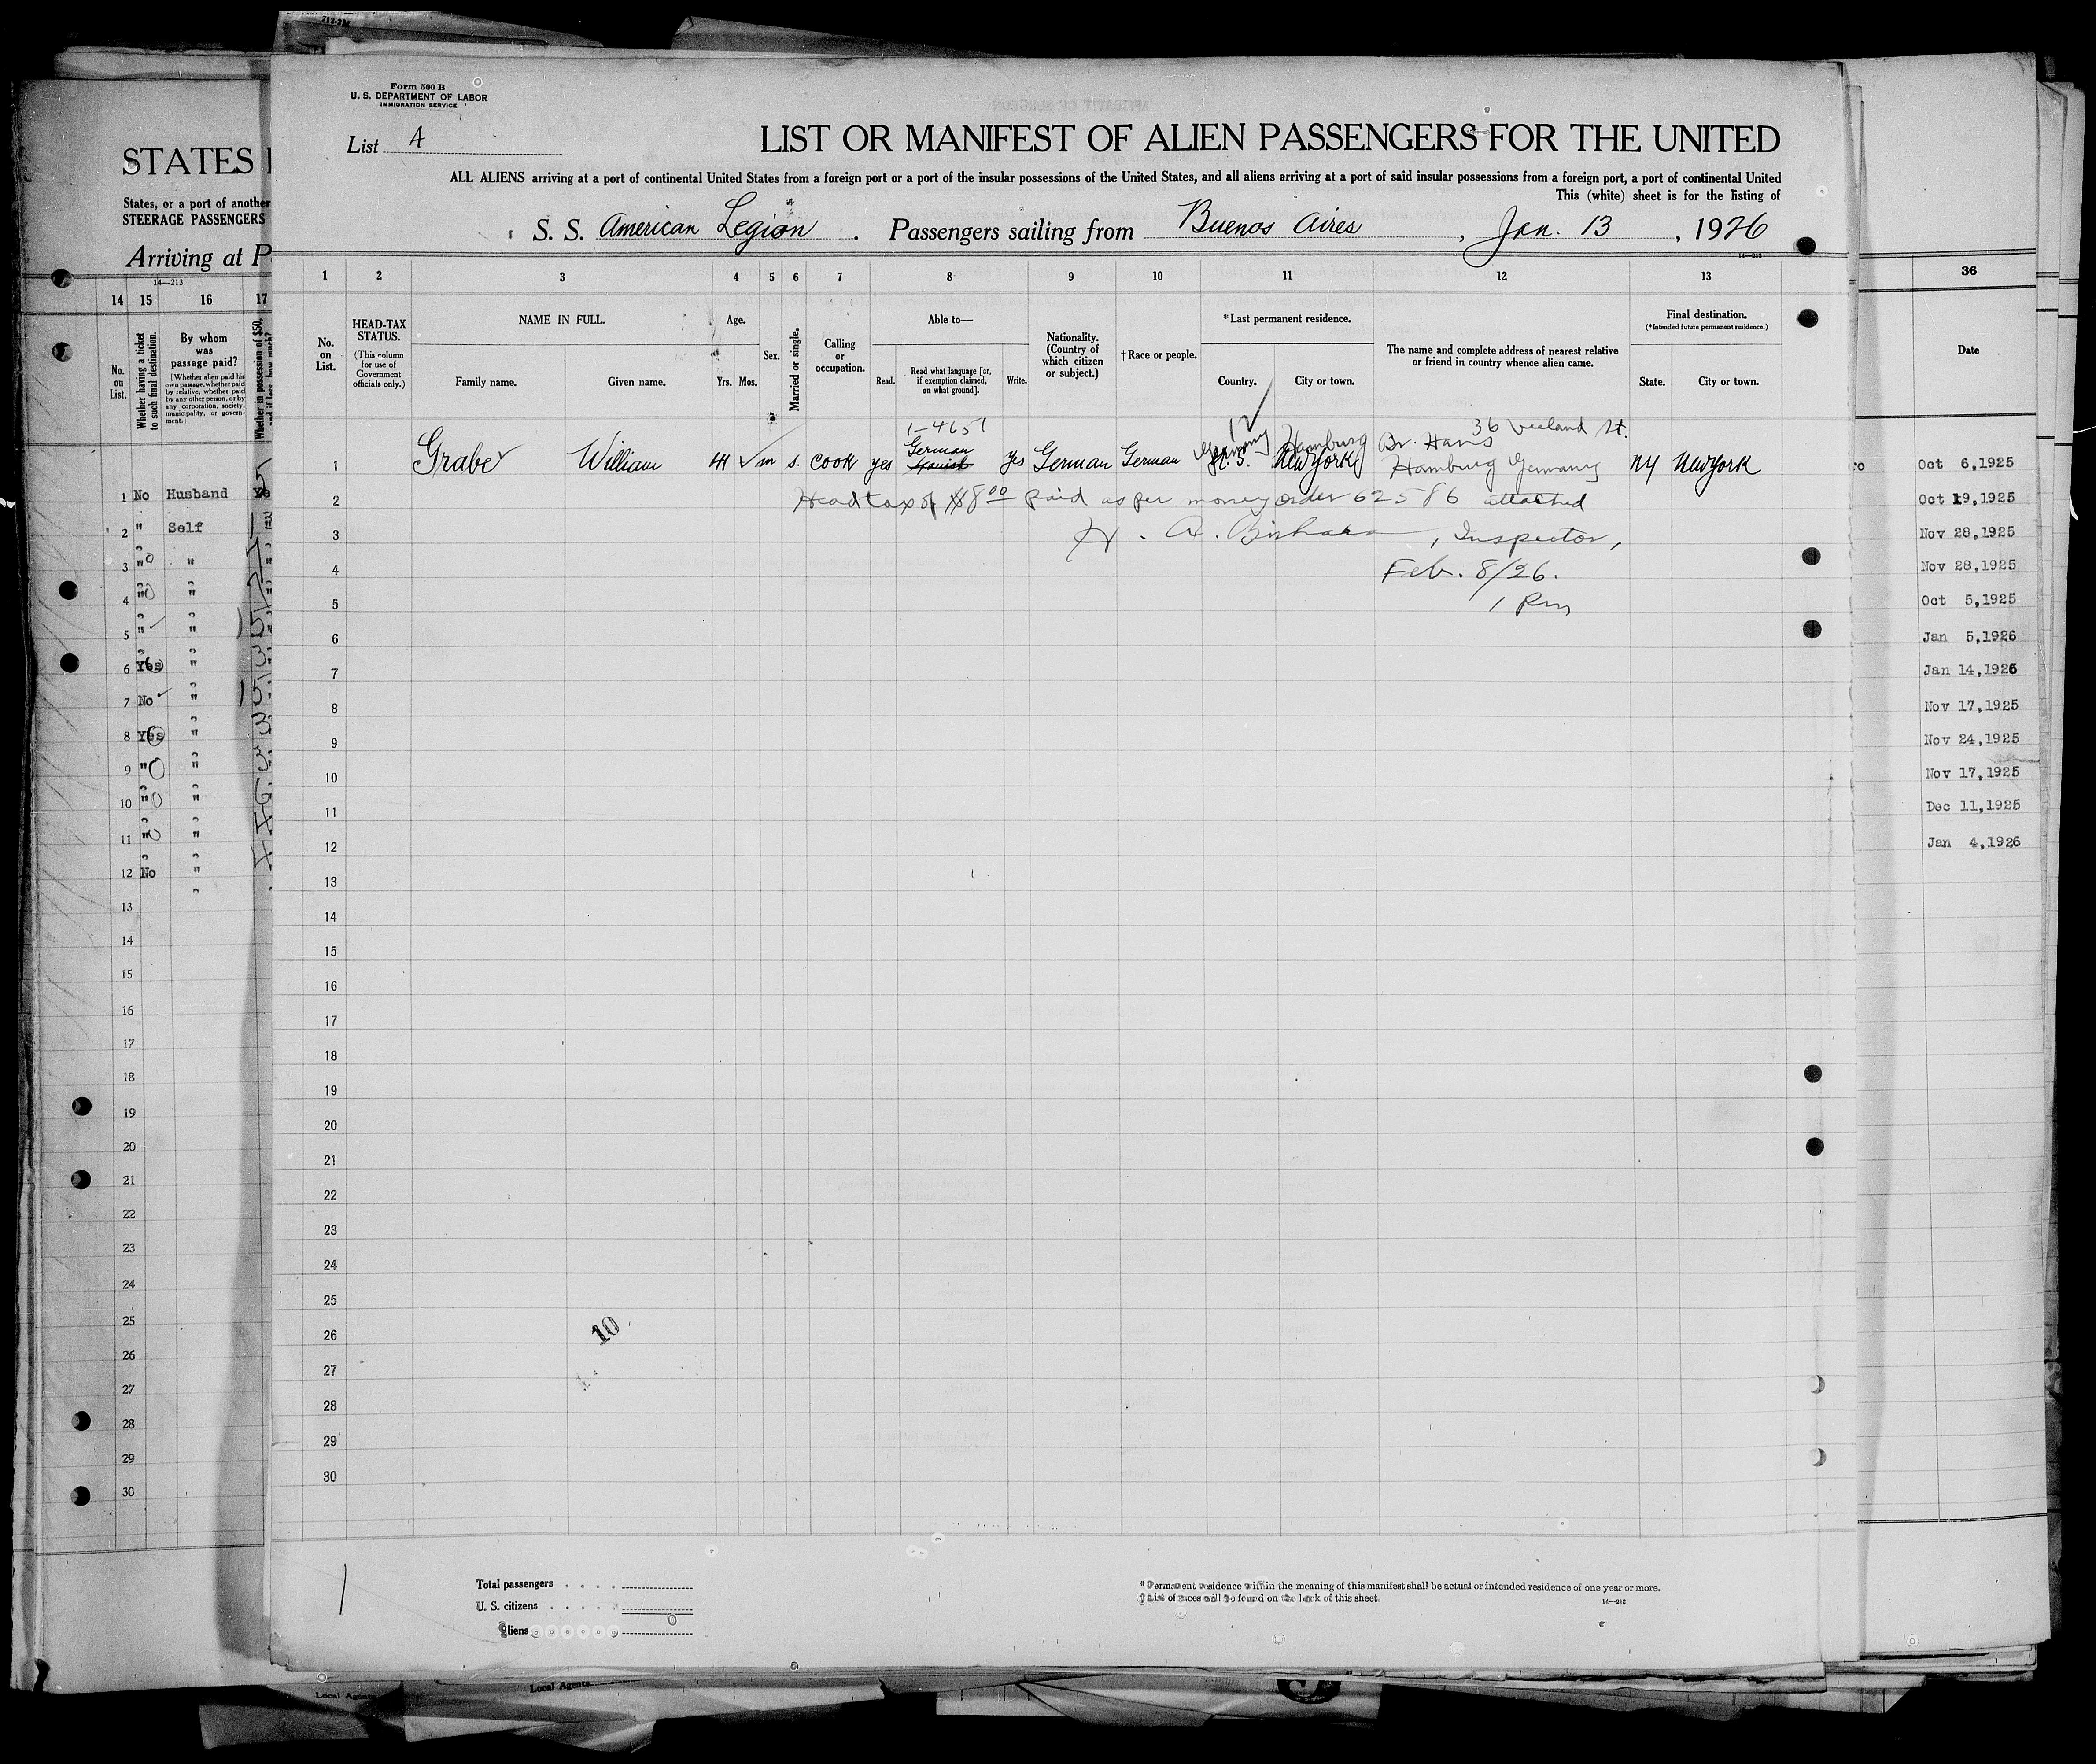 712-214
Form 500 B
U. S. DEPARTMENT OF LABOR
IMMIGRATION SERVICE
List A
LIST OR MANIFEST OF ALIEN PASSENGERS FOR THE UNITED
ALL ALIENS arriving at a port of continental United States from a foreign port or a port of the insular possessions of the United States, and all aliens arriving at a port of said insular possessions from a foreign port, a port of continental United
This (white) sheet is for the listing of
S. S. American Legion. Passengers sailing from Buenos Aires, Jan. 13, 1926
14—213
1 2 3 4 5 6 7 8 9 10 11 12 13
No. on List.
HEAD-TAX STATUS.
(This column for use of Government officials only.)
NAME IN FULL.
Family name. Given name.
Age.
Yrs. Mos.
Sex.
Married or single.
Calling or occupation.
Able to—
Read. Read what language [or, if exemption claimed, on what ground]. Write.
Nationality. (Country of which citizen or subject.)
† Race or people.
*Last permanent residence.
Country. City or town.
The name and complete address of nearest relative or friend in country whence alien came.
Final destination.
(*Intended future permanent residence.)
State. City or town.
1-4651
12
German Germany Hamburg Br. Hans 36 St.
1 Grabe William 41 m s. cook yes Spanish yes German German U.S. New York Hamburg Germany NY New York
2 Head tax of $8.00 paid as per money order 62586 attached
3 H. A. , Inspector,
4 Feb. 8/26.
5 1 Pm
6
7
8
9
10
11
12
13
14
15
16
17
18
19
20
21
22
23
24
25
26
27
28
29
30
10
Total passengers
U. S. citizens
Aliens
* Permanent residence within the meaning of this manifest shall be actual or intended residence of one year or more.
† List of races will be found on the back of this sheet.
STATES
States, or a port of another
STEERAGE PASSENGERS
Arriving at P
14—213
14 15 16 17
No. on List.
Whether having a ticket to such final destination.
By whom was passage paid?
(Whether alien paid his own passage, whether paid by relative, whether paid by any other person, or by any corporation, society, municipality, or government.)
Whether in possession of $50,
1 No Husband Ye
2 " Self
3 " "
4 " "
5 " "
6 Yes "
7 No "
8 Yes "
9 " "
10 " "
11 " "
12 No "
13
14
15
16
17
18
19
20
21
22
23
24
25
26
27
28
29
30
36
Date
ro Oct 6,1925
Oct 19,1925
Nov 28,1925
Nov 28,1925
Oct 5,1925
Jan 5,1926
Jan 14,1926
Nov 17,1925
Nov 24,1925
Nov 17,1925
Dec 11,1925
Jan 4,1926
Local Agents
Local Agents